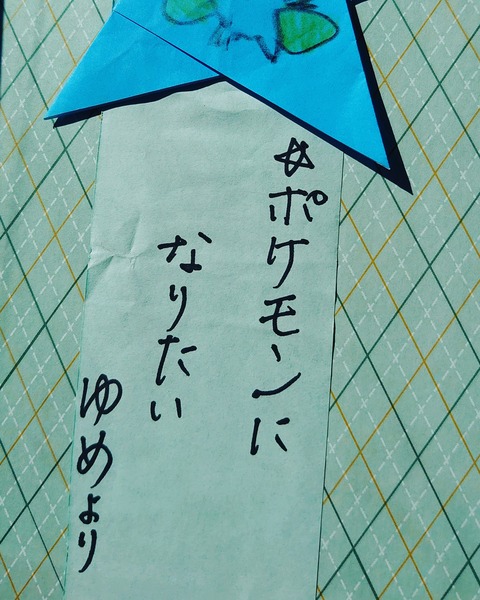 ☆ポケモンに
なりたい
ゆめより